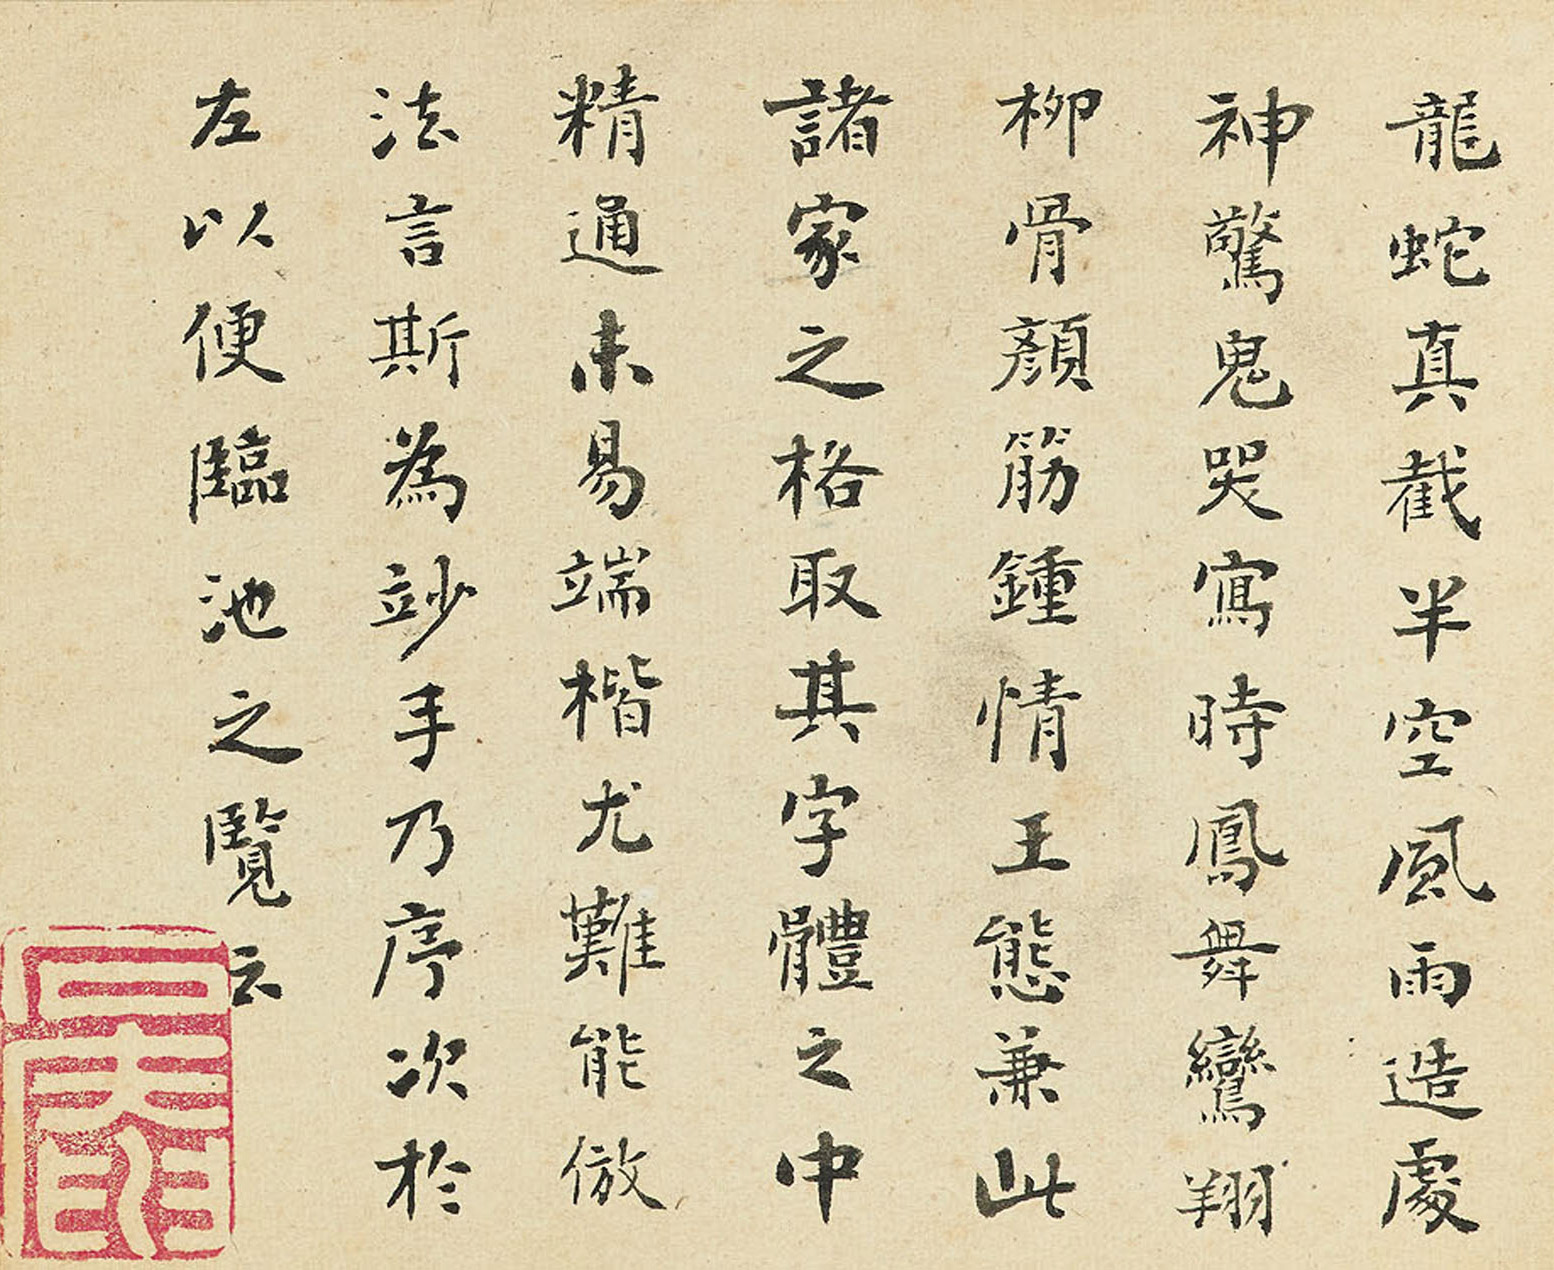 龍蛇真截半空風雨造處
神驚鬼哭寫時鳳舞鸞翔
柳骨顏筋鍾情王態兼此
諸家之格取其字體之中
精通未易端楷尤難能倣
法言斯為竗手乃序次於
左以便臨池之覽云